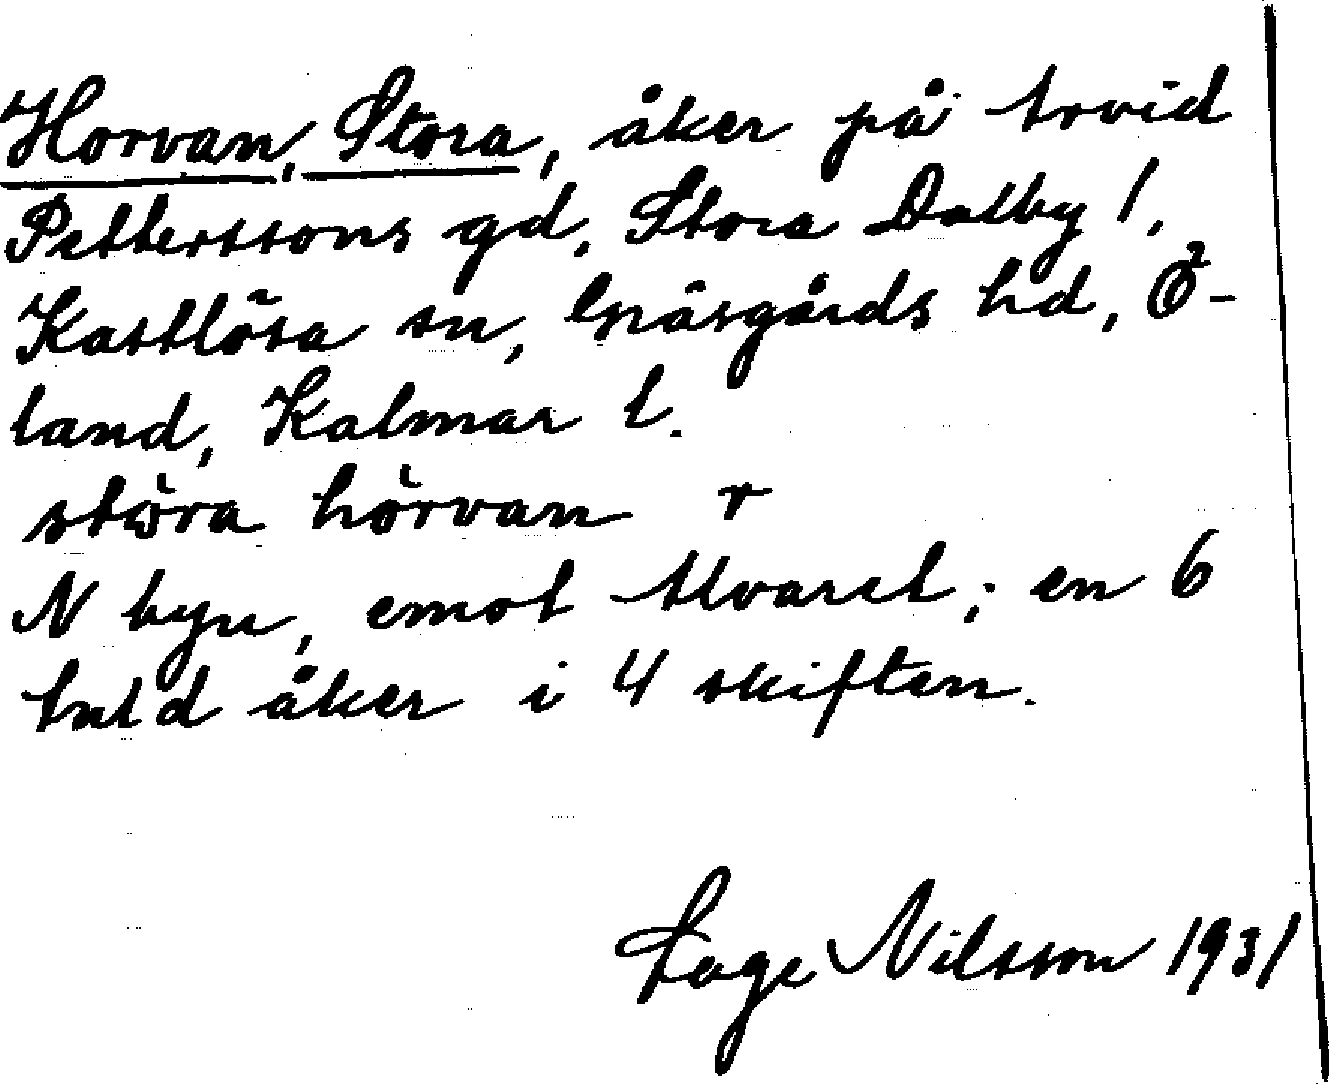 Horvan, Stora, åker på Arvid
Petterssons gd, Stora Dalby 1,
Kastlösa sn, Gräsgårds hd, Ö-
land, Kalmar l.
stòra hòrvan r
N byn, emot Alvaret; en 6
tnld åker i 4 skiften.
Lage Nilsson 1931